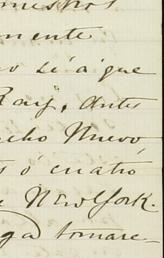 mestros
mente
o sé a que
Raif, antes
cho Nuevo,
s ó cuatro
e New York.
ga tomare-